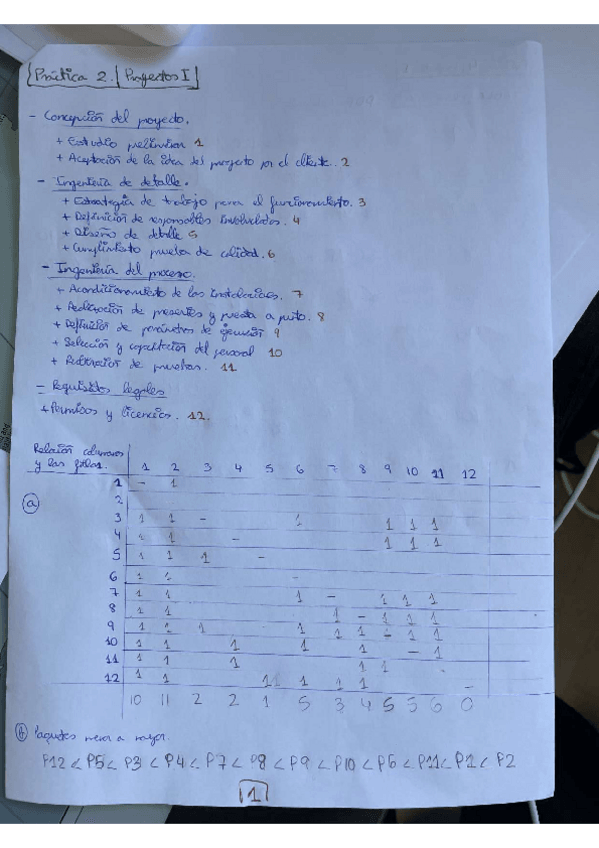 Práctica 2. Proyectos I
- Concepción del proyecto.
+ Estudio preliminar 1
+ Aceptación de la idea del proyecto por el cliente. 2
- Ingeniería de detalle.
+ Estrategia de trabajo para el funcionamiento. 3
+ Definición de responsables involucrados. 4
+ Diseño de detalle 5
+ Cumplimiento prueba de calidad. 6
- Ingeniería del proceso.
+ Acondicionamiento de las instalaciones. 7
+ Realización de y puesta a punto. 8
+ Definición de parámetros de ejecución 9
+ Selección y capacitación del personal 10
+ Realización de pruebas. 11
- Requisitos legales
+ Permisos y licencias. 12.
Relación columnas
y las filas. 1 2 3 4 5 6 7 8 9 10 11 12
1 - 1
a 2
3 1 1 - 1 1 1 1
4 1 1 - 1 1 1
5 1 1 1 -
6 1 1 -
7 1 1 1 - 1 1 1
8 1 1 1 - 1 1 1
9 1 1 1 1 1 1 - 1 1
10 1 1 1 1 1 - 1
11 1 1 1 1 1 -
12 1 1 1 1 1 1 1 -
10 11 2 2 1 5 3 4 5 5 6 0
b Paquetes menor a mayor.
P12 < P5 < P3 < P4 < P7 < P8 < P9 < P10 < P6 < P11 < P1 < P2
1